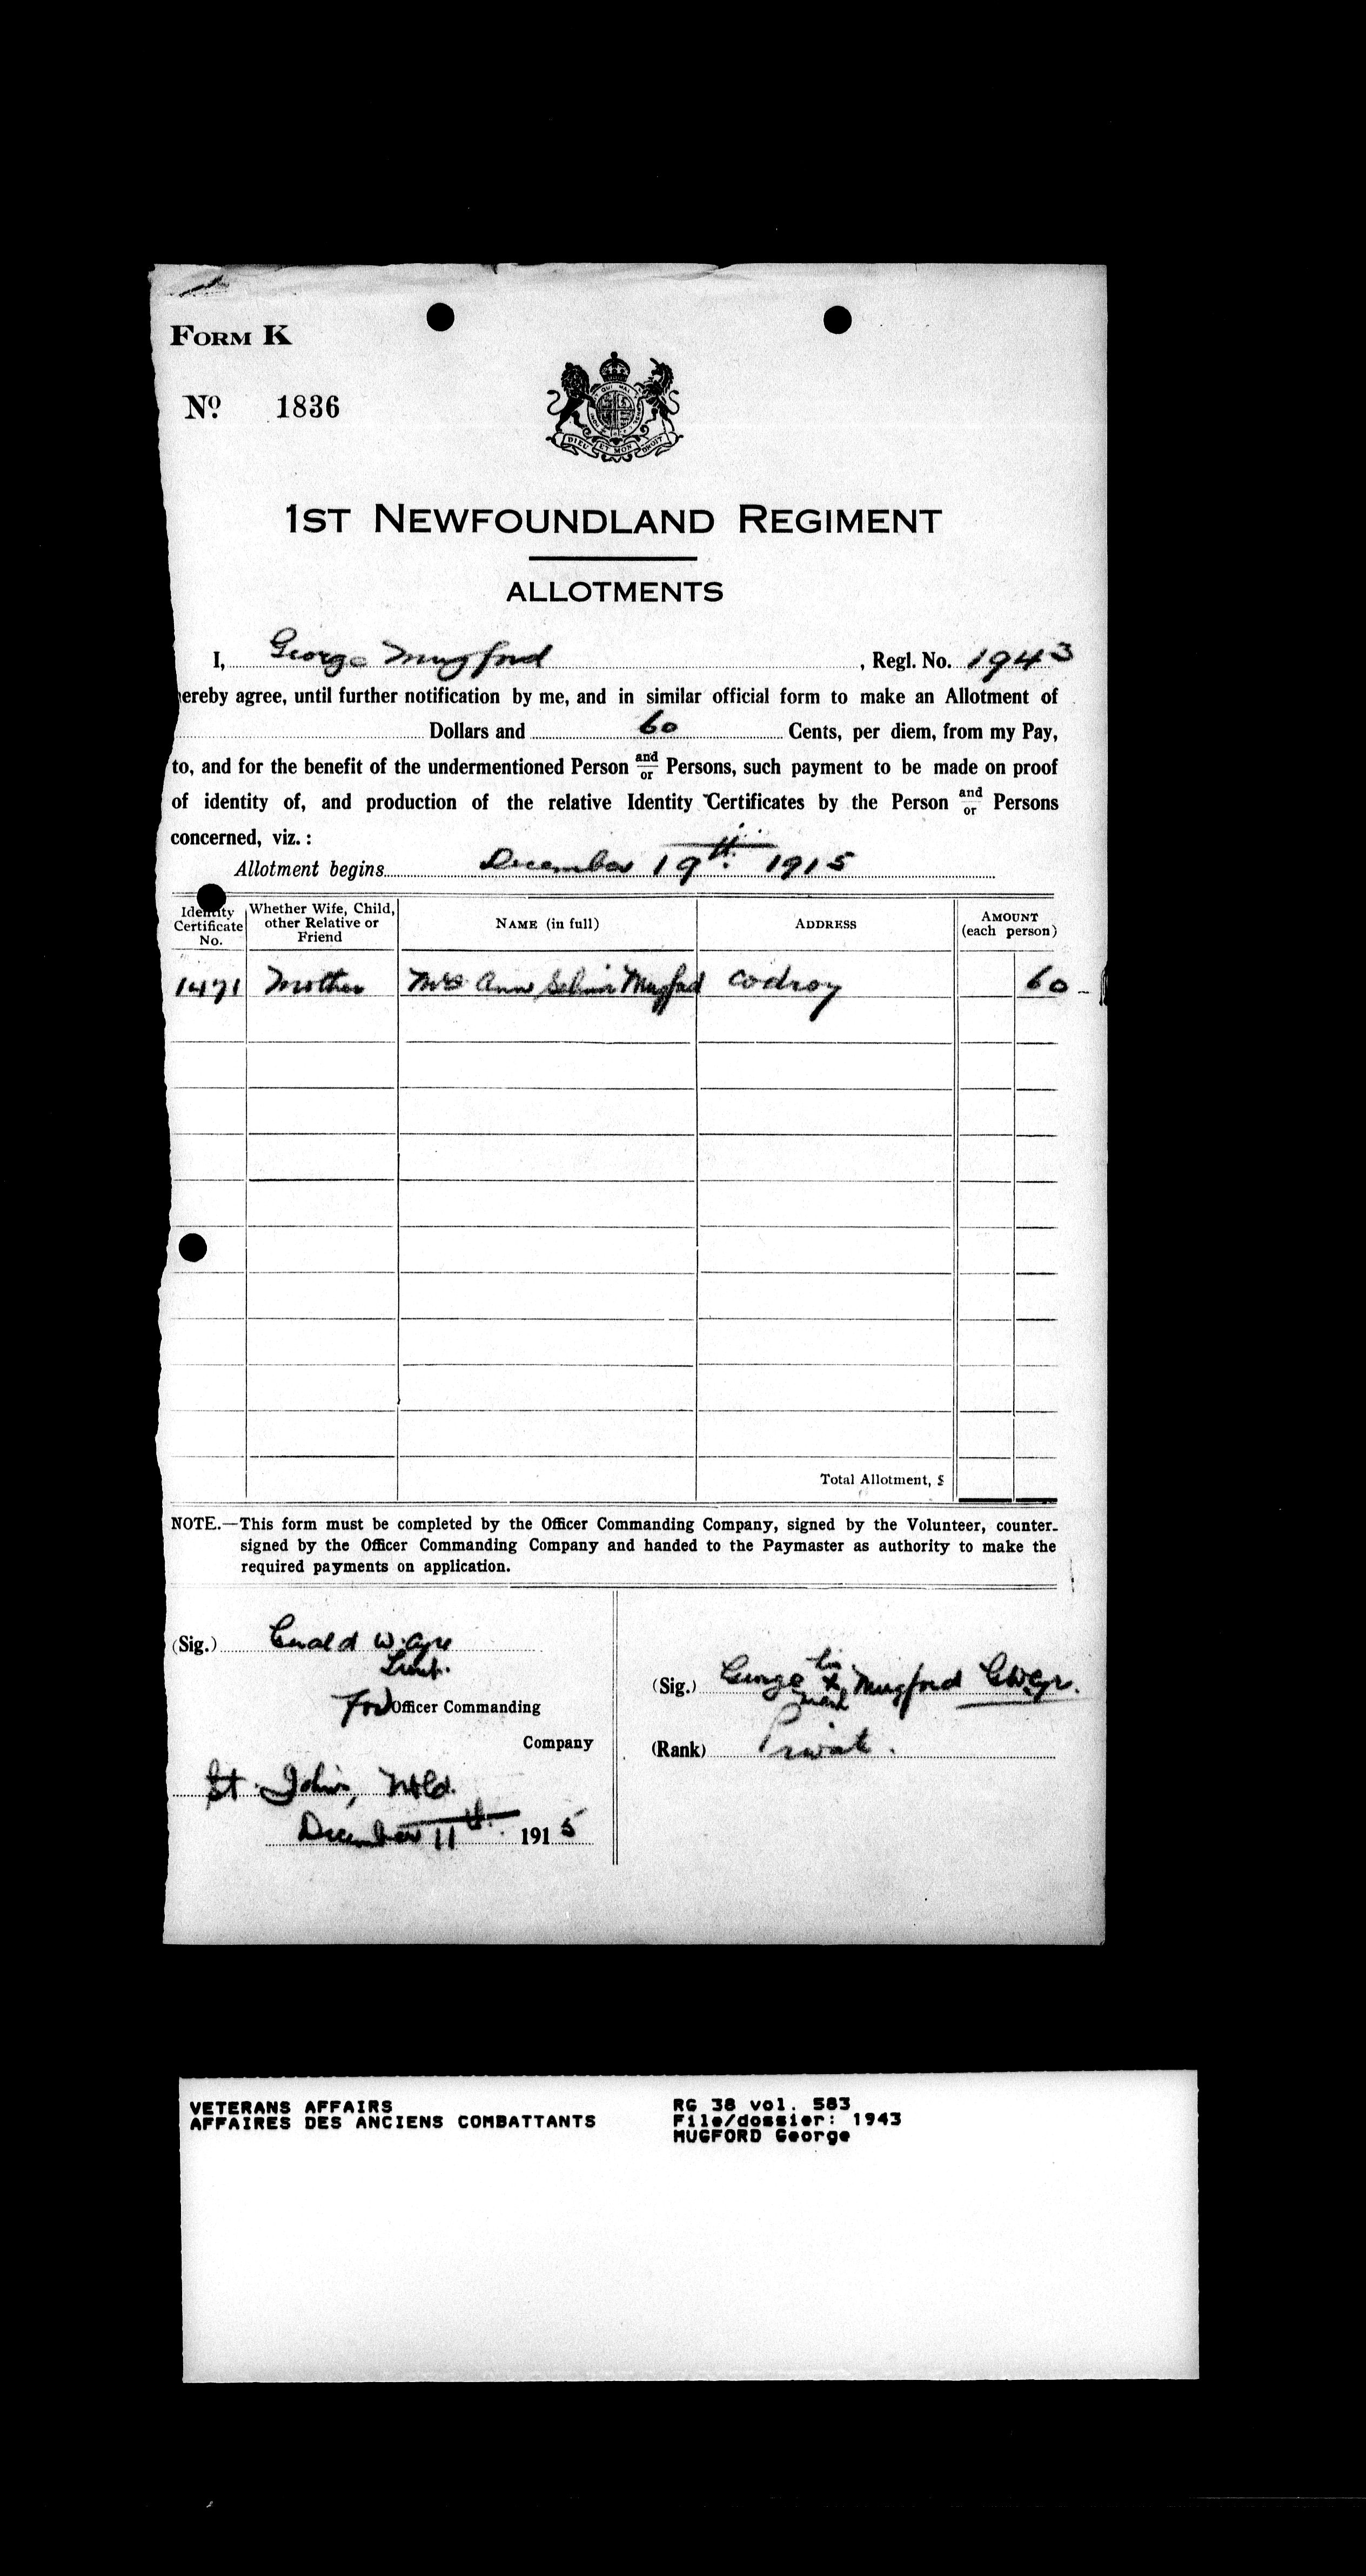 FORM K
No. 1836
QUI MAL
DIEU ET MON DROIT
1ST NEWFOUNDLAND REGIMENT
ALLOTMENTS
I, George Mugford, Regl. No. 1943
hereby agree, until further notification by me, and in similar official form to make an Allotment of
Dollars and 60 Cents, per diem, from my Pay,
to, and for the benefit of the undermentioned Person and/or Persons, such payment to be made on proof
of identity of, and production of the relative Identity Certificates by the Person and/or Persons
concerned, viz.:
Allotment begins December 19th 1915
Identity Certificate No. Whether Wife, Child, other Relative or Friend NAME (in full) ADDRESS AMOUNT (each person)
1471 Mother Mrs Ann Selina Mugford Codroy 60
Total Allotment, $
NOTE.—This form must be completed by the Officer Commanding Company, signed by the Volunteer, counter-
signed by the Officer Commanding Company and handed to the Paymaster as authority to make the
required payments on application.
(Sig.) Gerald W. Ayre
Lieut.
For Officer Commanding
Company
St. John's, Nfld.
December 11th 1915
(Sig.) George his X mark Mugford GWAyre.
(Rank) Private.
VETERANS AFFAIRS
AFFAIRES DES ANCIENS COMBATTANTS
RG 38 vol. 583
File/dossier: 1943
MUGFORD George